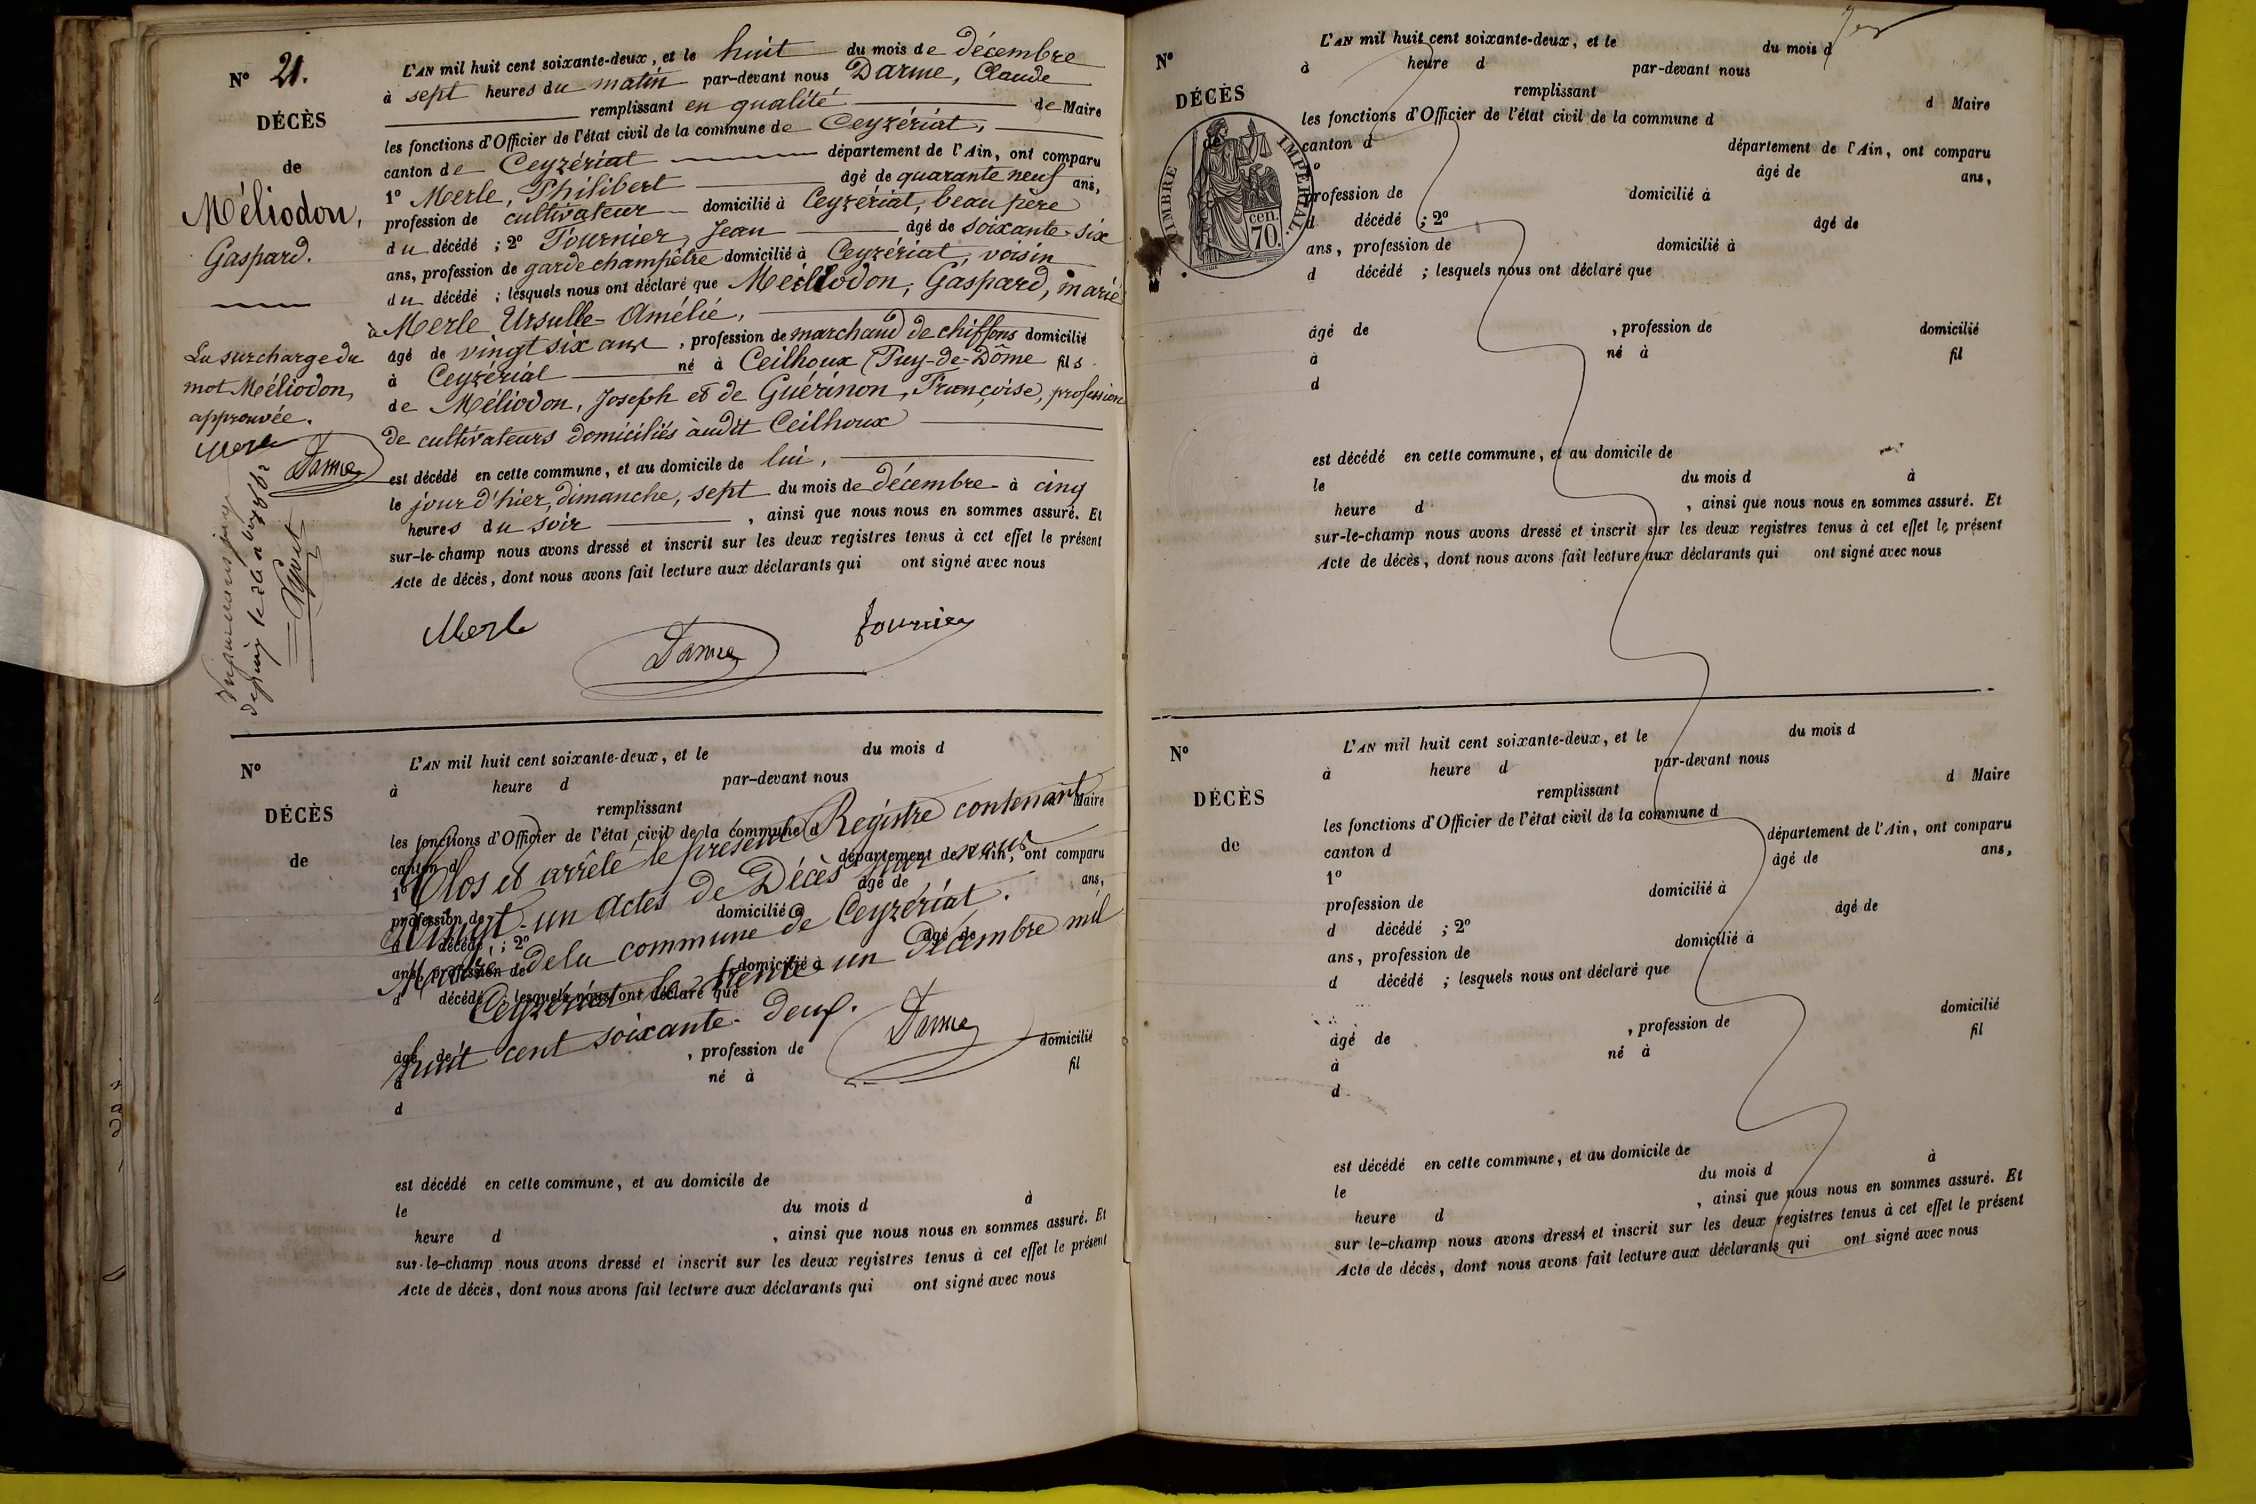 N° 21.
DÉCÈS
de
Méliodon,
Gaspard.
L'AN mil huit cent soixante-deux, et le huit du mois de décembre
à sept heures du matin par-devant nous Darme, Claude
remplissant en qualité de Maire
les fonctions d'Officier de l'état civil de la commune de Ceyzériat,
canton de Ceyzériat département de l'Ain, ont comparu
1° Merle, Philibert âgé de quarante neuf ans,
profession de cultivateur domicilié à Ceyzériat, beau père
du décédé ; 2° Fournier, Jean âgé de soixante-six
ans, profession de garde champêtre domicilié à Ceyzériat, voisin
du décédé ; lesquels nous ont déclaré que Méliodon, Gaspard, marié
à Merle Ursulle Amélie,
âgé de vingt six ans, profession de marchand de chiffons domicilié
à Ceyzériat né à Ceilhoux (Puy-de-Dôme fils
de Méliodon, Joseph et de Guérinon, Françoise, profession
de cultivateurs domiciliés audit Ceilhoux
est décédé en cette commune, et au domicile de lui,
le jour d'hier, dimanche, sept du mois de décembre à cinq
heures du soir , ainsi que nous nous en sommes assuré. Et
sur-le-champ nous avons dressé et inscrit sur les deux registres tenus à cet effet le présent
Acte de décès, dont nous avons fait lecture aux déclarants qui ont signé avec nous
Merle
Darme
Fournier
La surcharge du
mot Méliodon,
approuvée.
Merle
Darme
N°
DÉCÈS
de
L'AN mil huit cent soixante-deux, et le du mois d
à heure d par-devant nous
remplissant Maire
les fonctions d'Officier de l'état civil de la commune d
canton d département de l'Ain, ont comparu
1° âgé de ans,
profession de domicilié à
d décédé ; 2° âgé de
ans, profession de domicilié à
d décédé ; lesquels nous ont déclaré que
âgé de , profession de domicilié
à né à fil
d
est décédé en cette commune, et au domicile de
le du mois d à
heure d , ainsi que nous nous en sommes assuré. Et
sur-le-champ nous avons dressé et inscrit sur les deux registres tenus à cet effet le présent
Acte de décès, dont nous avons fait lecture aux déclarants qui ont signé avec nous
Clos et arrêté le présent Régistre contenant
Vingt-un actes de Décès par nous
Maire de la commune de Ceyzériat.
Ceyzériat le trente un Décembre mil
huit cent soixante-deux.
Darme
N°
DÉCÈS
de
TIMBRE IMPÉRIAL.
70 cen.
L'AN mil huit cent soixante-deux, et le du mois d
à heure d par-devant nous
remplissant d Maire
les fonctions d'Officier de l'état civil de la commune d
canton d département de l'Ain, ont comparu
1° âgé de ans,
profession de domicilié à
d décédé ; 2° âgé de
ans, profession de domicilié à
d décédé ; lesquels nous ont déclaré que
âgé de , profession de domicilié
à né à fil
d
est décédé en cette commune, et au domicile de
le du mois d à
heure d , ainsi que nous nous en sommes assuré. Et
sur-le-champ nous avons dressé et inscrit sur les deux registres tenus à cet effet le présent
Acte de décès, dont nous avons fait lecture aux déclarants qui ont signé avec nous
N°
DÉCÈS
de
L'AN mil huit cent soixante-deux, et le du mois d
à heure d par-devant nous
remplissant d Maire
les fonctions d'Officier de l'état civil de la commune d
canton d département de l'Ain, ont comparu
1° âgé de ans,
profession de domicilié à
d décédé ; 2° âgé de
ans, profession de domicilié à
d décédé ; lesquels nous ont déclaré que
âgé de , profession de domicilié
à né à fil
d
est décédé en cette commune, et au domicile de
le du mois d à
heure d , ainsi que nous nous en sommes assuré. Et
sur le-champ nous avons dressé et inscrit sur les deux registres tenus à cet effet le présent
Acte de décès, dont nous avons fait lecture aux déclarants qui ont signé avec nous